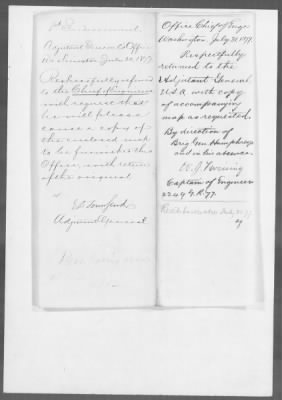 1st Endorsement.
Adjutant General's Office
Washington July 20, 1877.
Respectfully referred
to the Chief of Engineers
with request that
he will please
cause a copy of
the enclosed map
to be furnished this
Office, with return
of the original
E. D. Townsend
Adjutant General.
Office Chief of Engrs
Washington, July 21, 1877.
Respectfully
returned to the
Adjutant General
U.S.A. with copy
of accompanying
map as requested.
By direction of
Brig. Gen Humphreys
and in his absence.
Captain of Engineers
2249 G.R. 77.